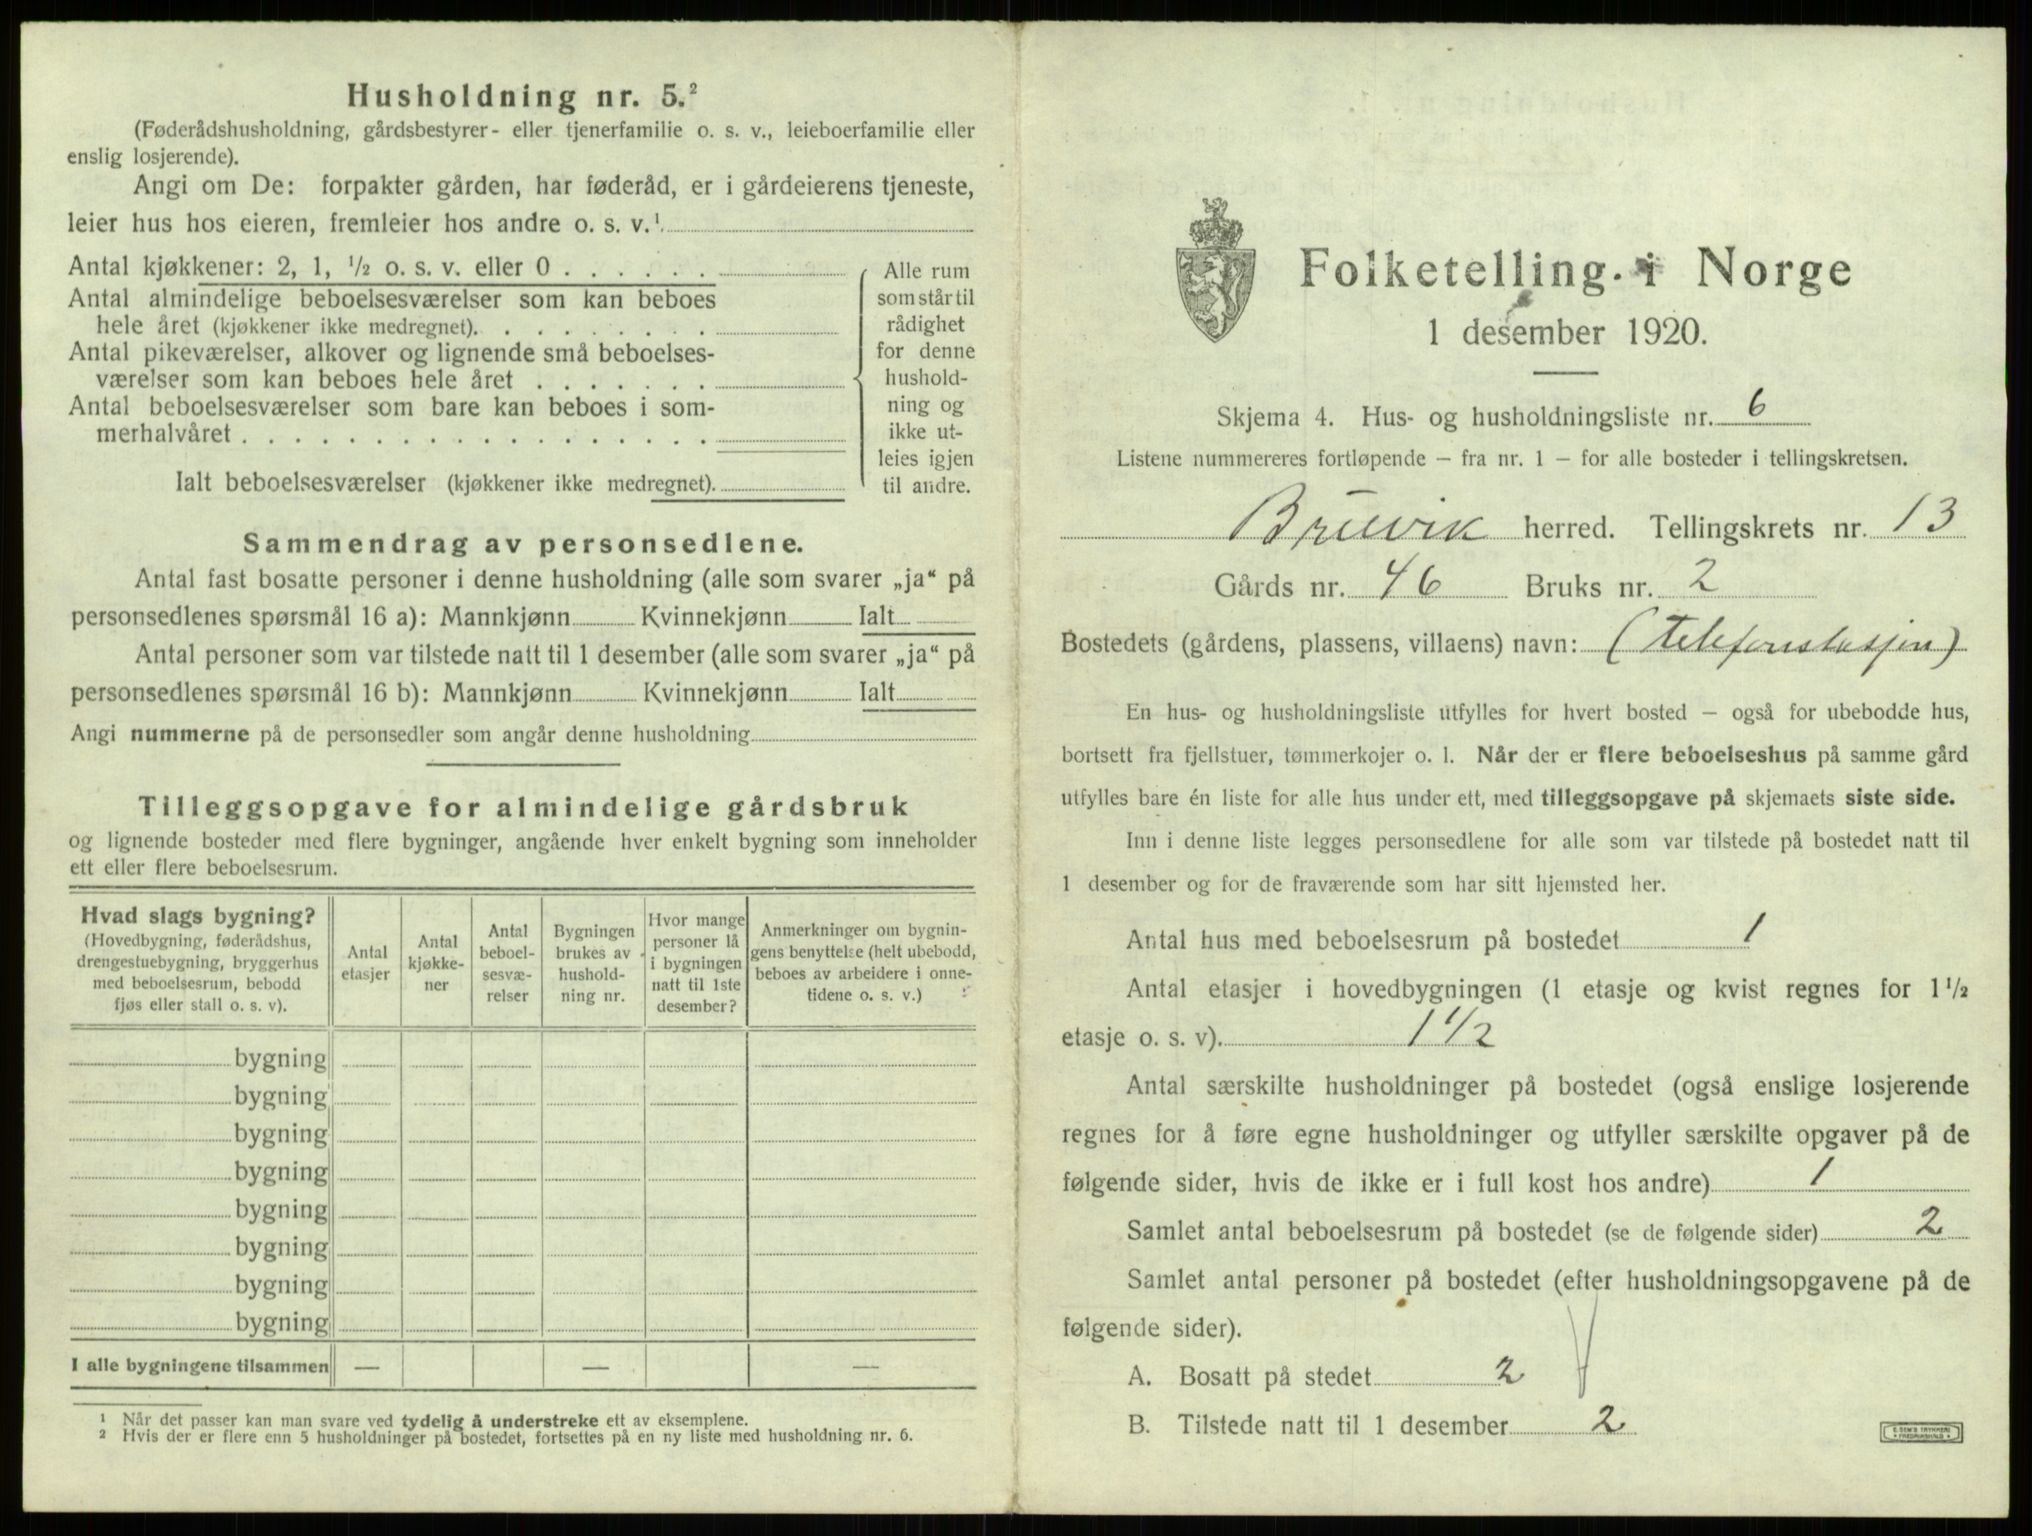 Husholdning nr. 5.²
(Føderådshusholdning, gårdsbestyrer- eller tjenerfamilie o. s. v., leieboerfamilie eller
enslig losjerende).
Angi om De: forpakter gården, har føderåd, er i gårdeierens tjeneste,
leier hus hos eieren, fremleier hos andre o. s. v.¹
Antal kjøkkener: 2, 1, ½ o. s. v. eller 0 . . . . . .
Antal almindelige beboelsesværelser som kan beboes
hele året (kjøkkener ikke medregnet). . . . . . . . .
Antal pikeværelser, alkover og lignende små beboelses-
værelser som kan beboes hele året . . . . . . .
Antal beboelsesværelser som bare kan beboes i som-
merhalvåret . . . . . . . . . . . . . . . . . .
Ialt beboelsesværelser (kjøkkener ikke medregnet).
Alle rum
som står til
rådighet
for denne
hushold-
ning og
ikke ut-
leies igjen
til andre.
Sammendrag av personsedlene.
Antal fast bosatte personer i denne husholdning (alle som svarer „ja“ på
personsedlenes spørsmål 16 a): Mannkjønn Kvinnekjønn Ialt
Antal personer som var tilstede natt til 1 desember (alle som svarer „ja“ på
personsedlenes spørsmål 16 b): Mannkjønn Kvinnekjønn Ialt
Angi nummerne på de personsedler som angår denne husholdning
Tilleggsopgave for almindelige gårdsbruk
og lignende bosteder med flere bygninger, angående hver enkelt bygning som inneholder
ett eller flere beboelsesrum.
Hvad slags bygning?
(Hovedbygning, føderådshus,
drengestuebygning, bryggerhus
med beboelsesrum, bebodd
fjøs eller stall o. s. v).
Antal
etasjer
Antal
kjøkke-
ner
Antal
beboel-
sesvæ-
relser
Bygningen
brukes av
hushold-
ning nr.
Hvor mange
personer lå
i bygningen
natt til 1ste
desember?
Anmerkninger om bygnin-
gens benyttelse (helt ubebodd,
beboes av arbeidere i onne-
tidene o. s. v.)
bygning
bygning
bygning
bygning
bygning
bygning
bygning
bygning
I alle bygningene tilsammen — — —
¹ Når det passer kan man svare ved tydelig å understreke ett av eksemplene.
² Hvis der er flere enn 5 husholdninger på bostedet, fortsettes på en ny liste med husholdning nr. 6.
Folketelling i Norge
1 desember 1920.
Skjema 4. Hus- og husholdningsliste nr. 6
Listene nummereres fortløpende – fra nr. 1 – for alle bosteder i tellingskretsen.
Bruvik herred. Tellingskrets nr. 13
Gårds nr. 46 Bruks nr. 2
Bostedets (gårdens, plassens, villaens) navn: (telefonstasjon)
En hus- og husholdningsliste utfylles for hvert bosted – også for ubebodde hus,
bortsett fra fjellstuer, tømmerkojer o. l. Når der er flere beboelseshus på samme gård
utfylles bare én liste for alle hus under ett, med tilleggsopgave på skjemaets siste side.
Inn i denne liste legges personsedlene for alle som var tilstede på bostedet natt til
1 desember og for de fraværende som har sitt hjemsted her.
Antal hus med beboelsesrum på bostedet 1
Antal etasjer i hovedbygningen (1 etasje og kvist regnes for 1½
etasje o. s. v). 1½
Antal særskilte husholdninger på bostedet (også enslige losjerende
regnes for å føre egne husholdninger og utfyller særskilte opgaver på de
følgende sider, hvis de ikke er i full kost hos andre) 1
Samlet antal beboelsesrum på bostedet (se de følgende sider) 2
Samlet antal personer på bostedet (efter husholdningsopgavene på de
følgende sider).
A. Bosatt på stedet 2
B. Tilstede natt til 1 desember 2
E. SEM'S TRYKKERI
FREDRIKSHALD